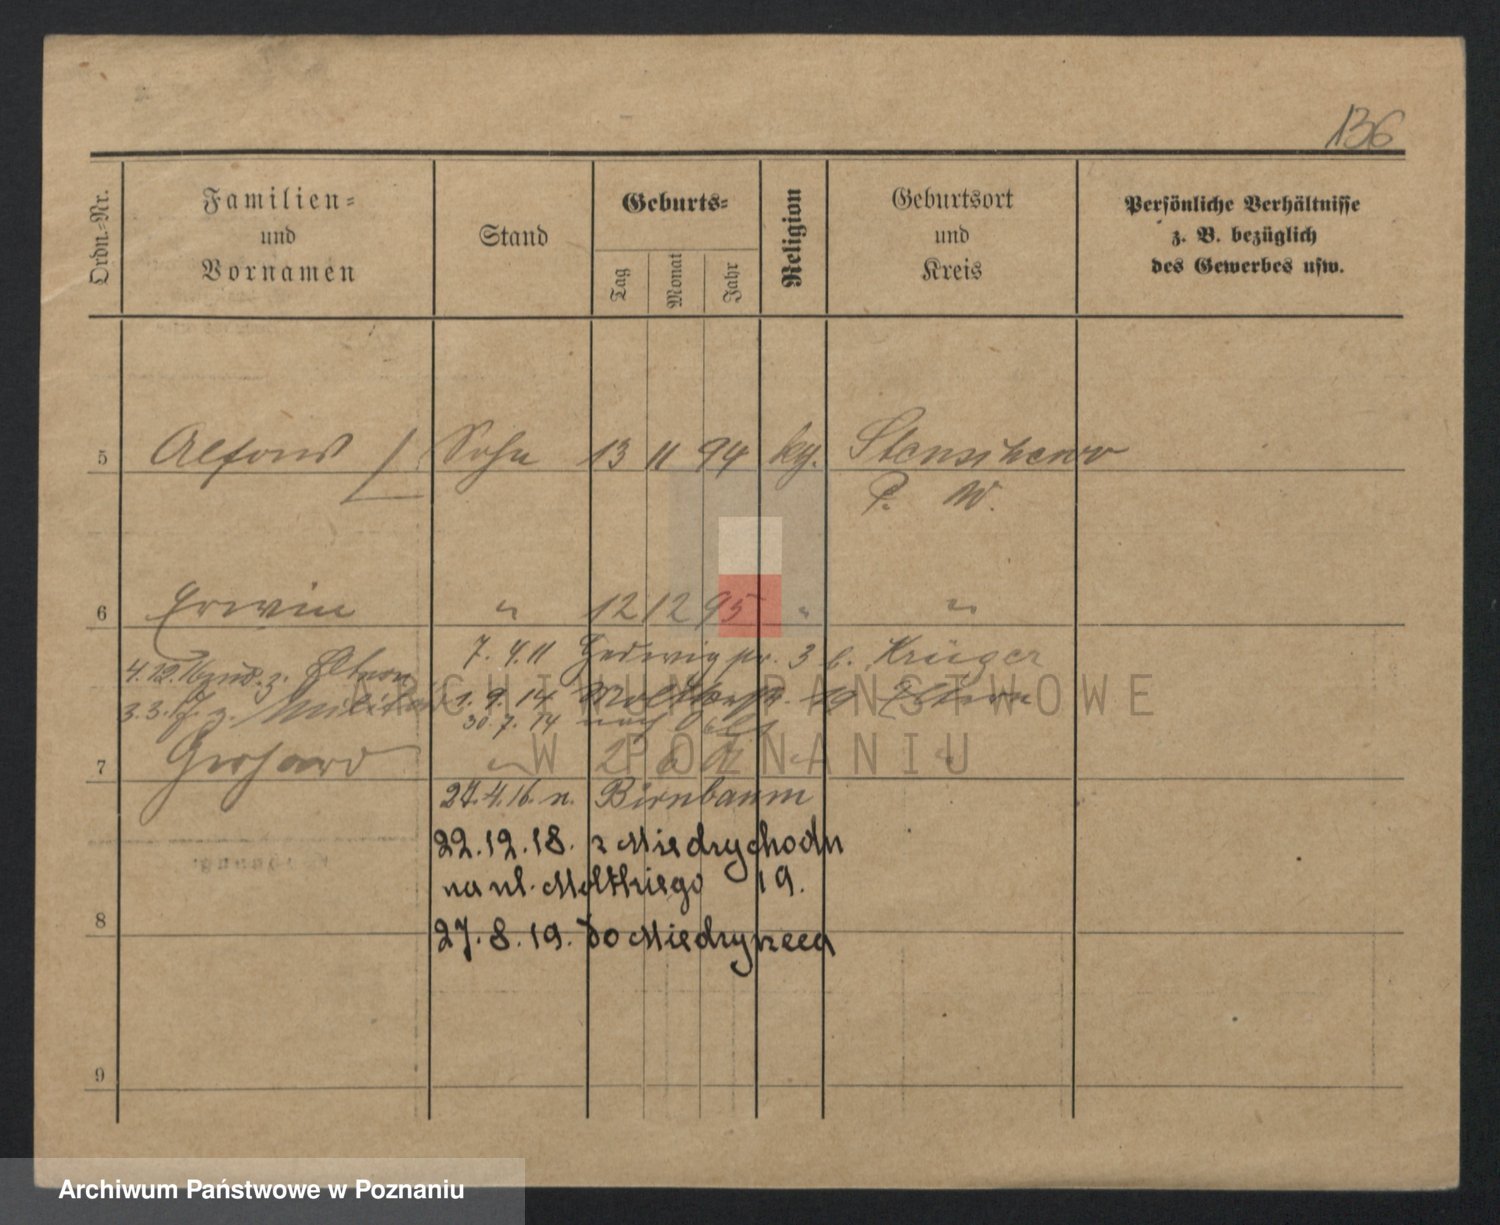 136
Ordn.-Nr.
Familien-
und
Vornamen
Stand
Geburts-
Tag
Monat
Jahr
Religion
Geburtsort
und
Kreis
Persönliche Verhältnisse
z. B. bezüglich
des Gewerbes usw.
5 Alfons Sohn 13 11 94 kg.
P. W.
6 Erwin " 12 12 95 " "
7. 4. 11 Hedwigstr. 3 b. Krüger
4. 12. 16 z. Eltern
3. 3. z. Militär 1. 9. 14 Moltkestr. 19 Eltern
30. 7. 14 nach
7 Gerhard "
27. 4. 16. n. Birnbaum
22. 12. 18. z Miedzychodu
na ul. Moltkiego 19.
8
27. 8. 19. do Miedzyrzecza
9
ARCHIWUM PAŃSTWOWE
W POZNANIU
Archiwum Państwowe w Poznaniu